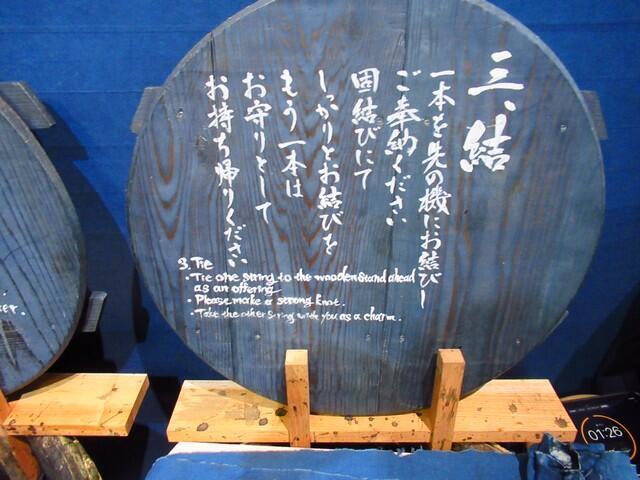 三、結
一本を先の機にお結びし
ご奉納ください
固結びにて
しっかりとお結びを
もう一本は
お守りとして
お持ち帰りください
3. Tie
・Tie one string to the wooden stand ahead
as an offering
・Please make a strong knot.
・Take the other string with you as a charm.
01:26